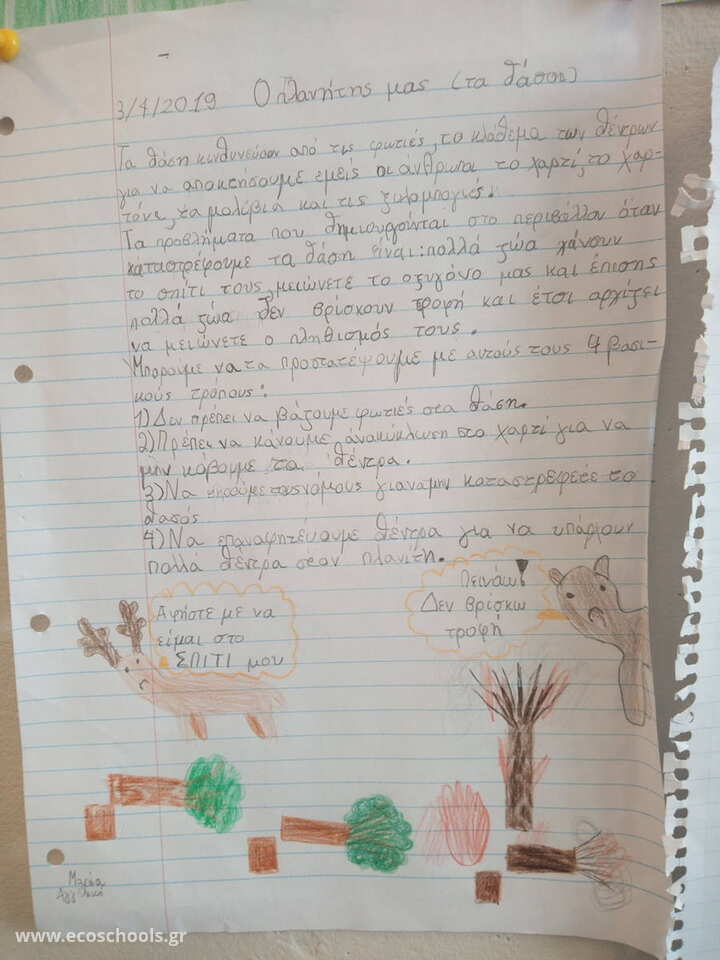 3/4/2019 Ο πλανήτης μας (τα δάση)
Τα δάση κινδυνεύουν από τις φωτιές, το κλάδεμα των δέντρων
για να αποκτήσουμε εμείς οι άνθρωποι το χαρτί, το χαρ-
τόνι, τα μολύβια και τις ξυλομπογιές.
Τα προβλήματα που δημιουργούνται στο περιβάλλον όταν
καταστρέφουμε τα δάση είναι: πολλά ζώα χάνουν
το σπίτι τους, μειώνετε το οξυγόνο μας και επισης
πολλά ζώα δεν βρίσκουν τροφή και έτσι αρχίζει
να μειώνετε ο πληθισμός τους.
Μπορουμε να τα προστατέψουμε με αυτούς τους 4 βασι-
κούς τρόπους:
1) Δεν πρέπει να βάζουμε φωτιές στα δάση.
2) Πρέπει να κάνουμε ανακύκλωση στο χαρτί για να
μην κόβουμε τα δέντρα.
3) Να τους νόμους για να μην καταστρεφετε το
δασός
4) Να επαναφητέυουμε δέντρα για να υπάρχουν
πολλά δέντρα στον πλανίτη.
Αφήστε με να
είμαι στο
ΣΠΙΤΙ μου
Πεινάω!
Δεν βρίσκω
τροφή
www.ecoschools.gr